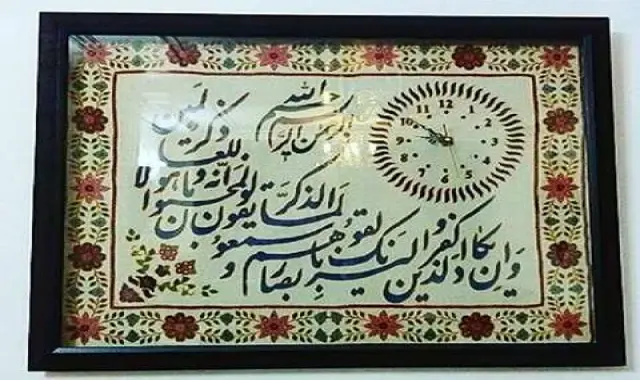 بسم الله
الرحمن الرحیم
وان یکاد الذین کفروا لیزلقونک بابصارهم
لما سمعوا الذکر و یقولون انه لمجنون
و ما هو الا ذکر للعالمین
12
11
10
9
8
7
6